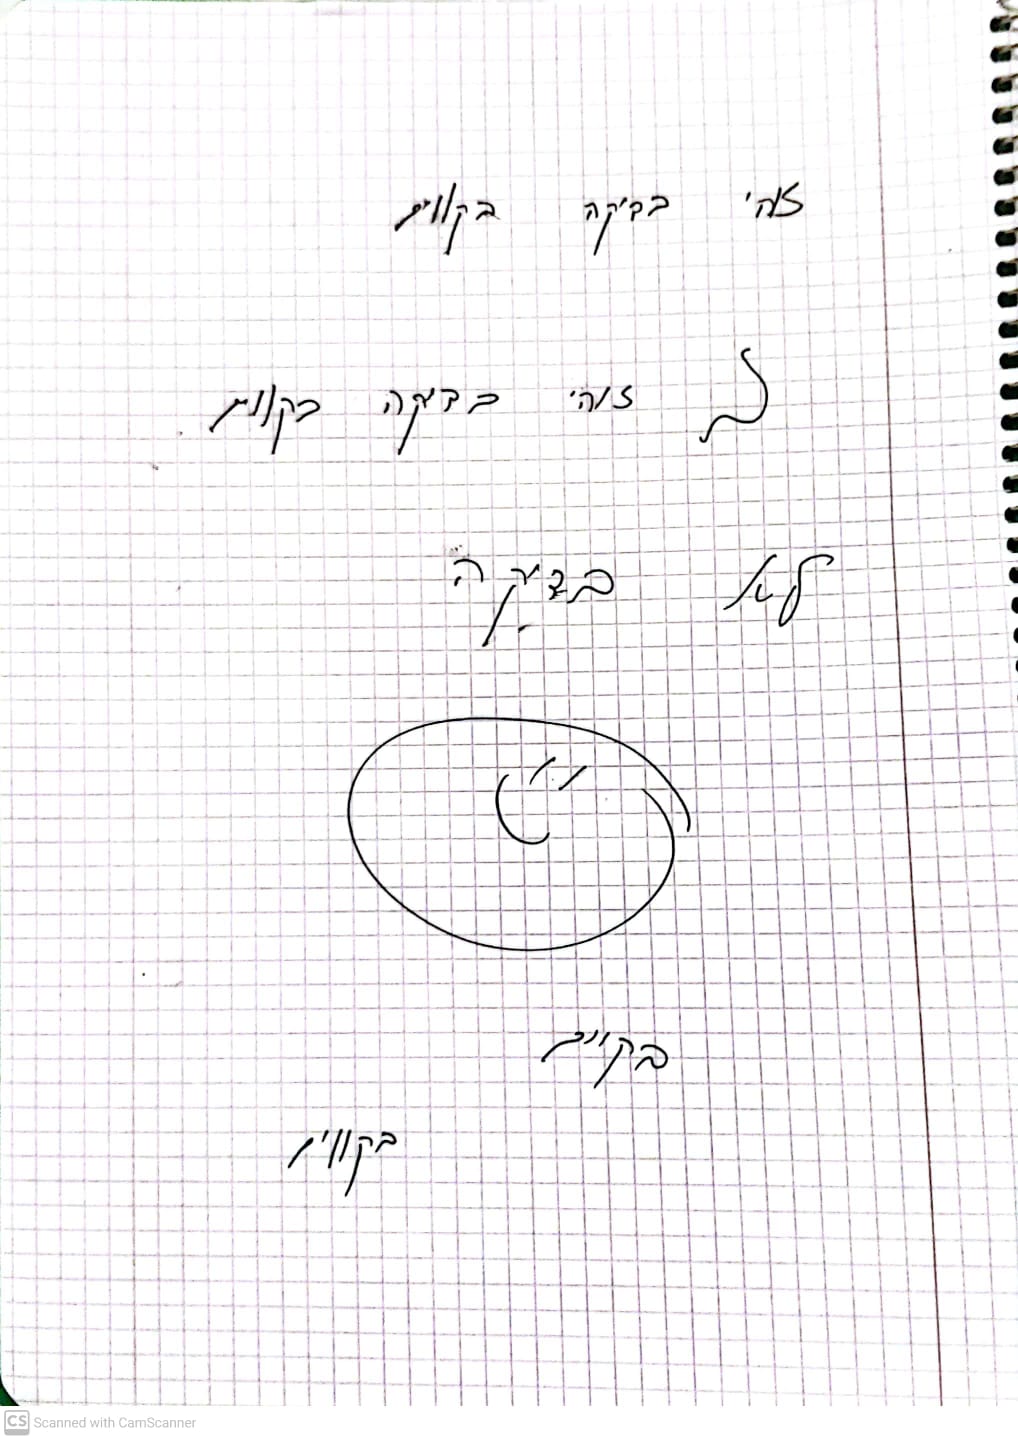 זוהי בדיקה בקווות
זוהי בדיקה בקוות
לא בדיקה
בקוית
בקווית
CS Scanned with CamScanner